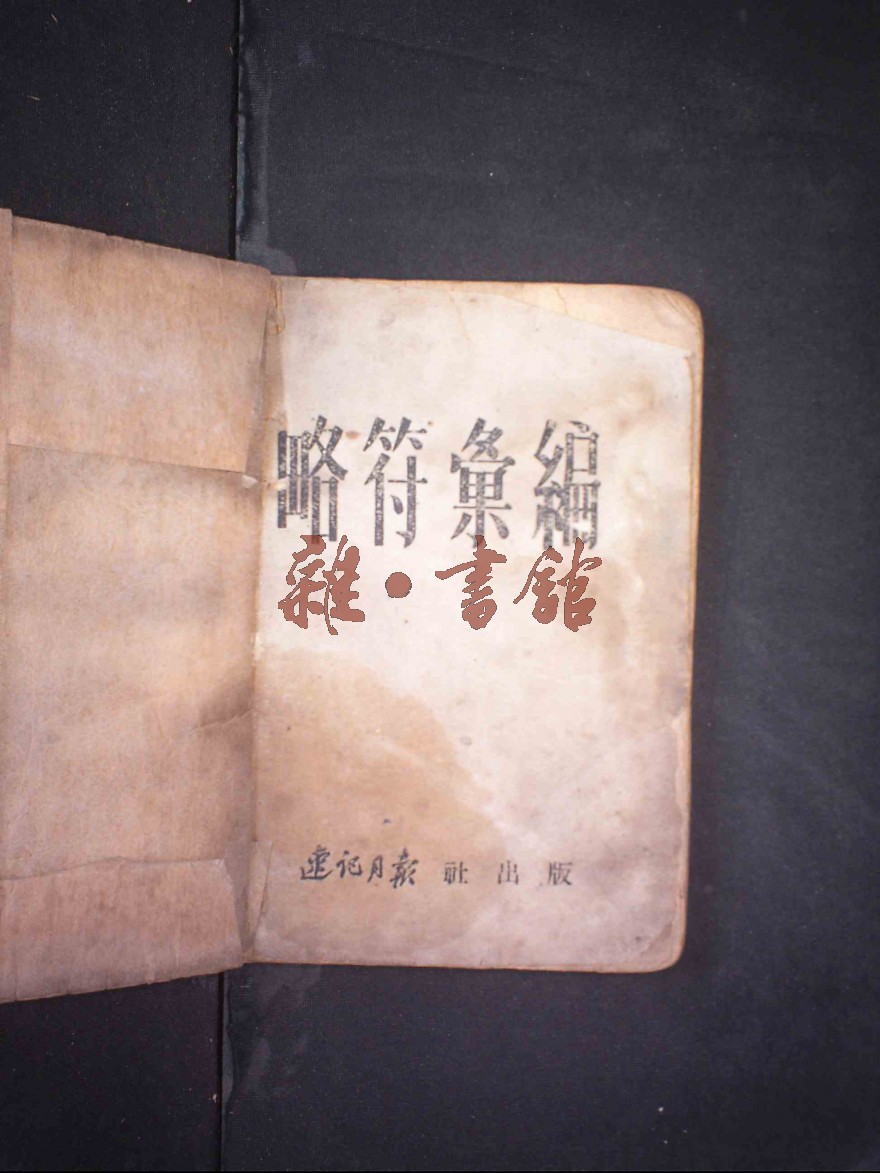 略符彙編
雜·書舘
速记月報 社出版